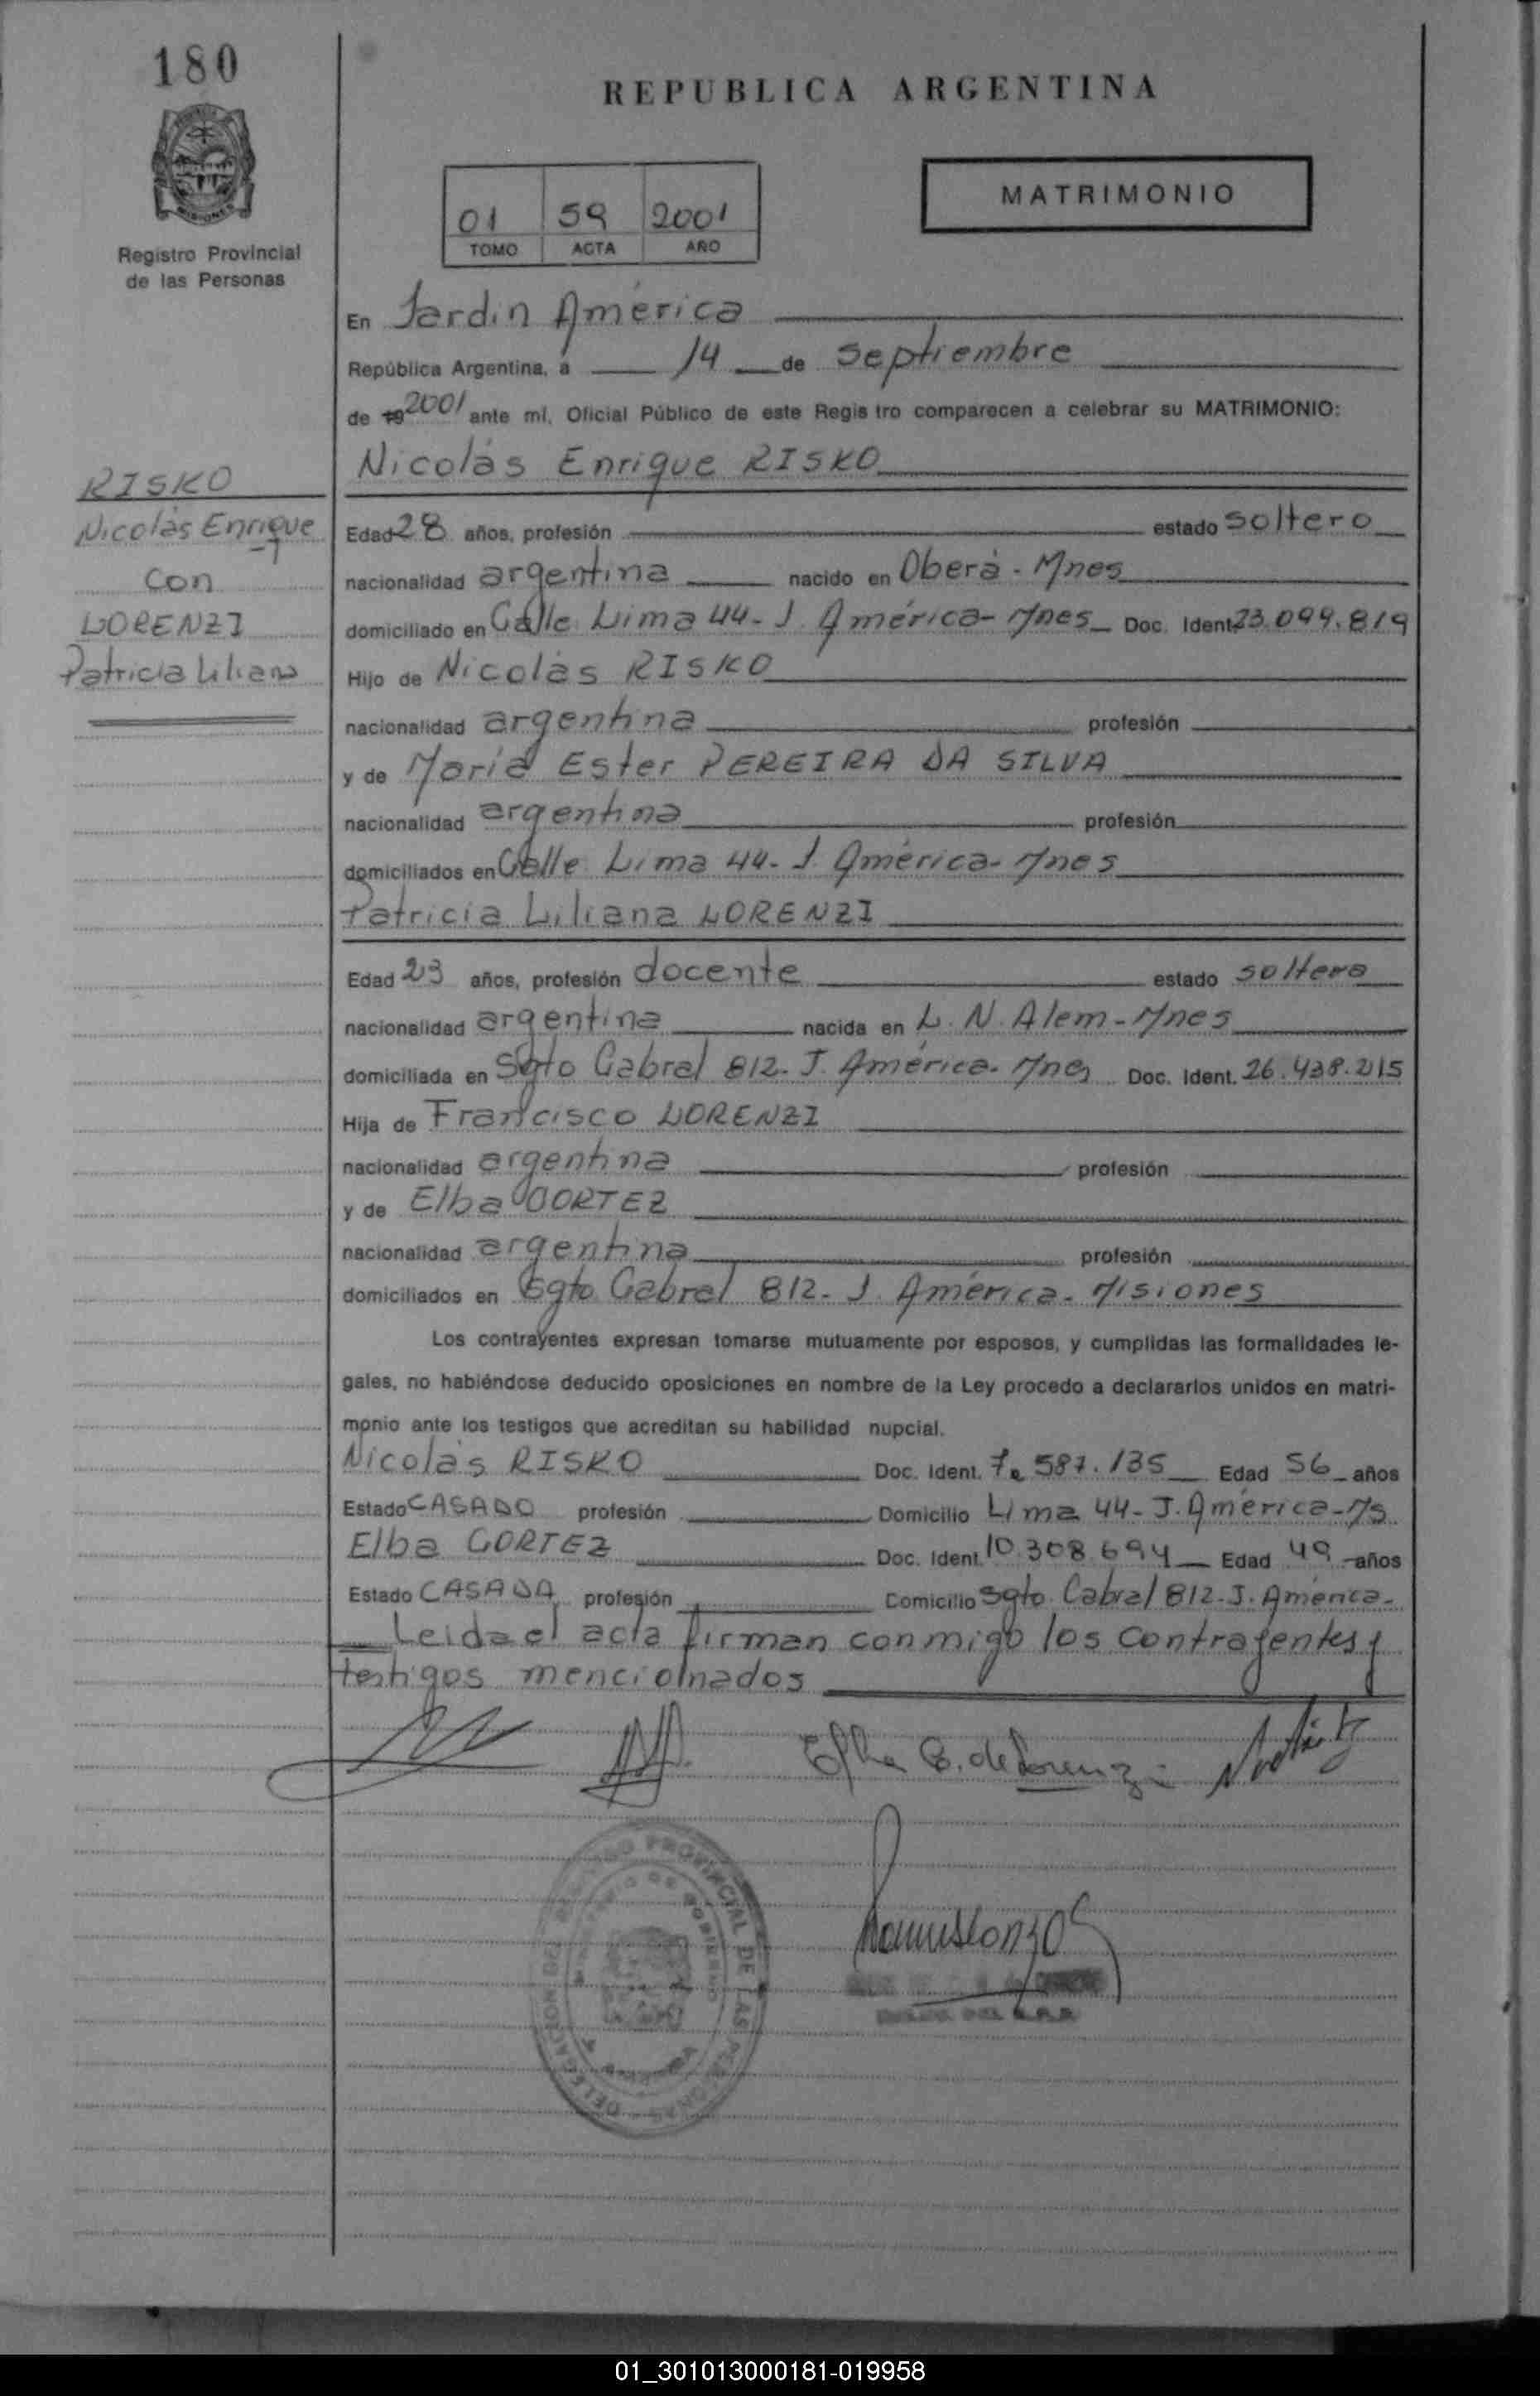 180
REPUBLICA ARGENTINA
MISIONES
Registro Provincial
de las Personas
01 59 2001
TOMO ACTA AÑO
MATRIMONIO
En Jardín América
República Argentina, a 14 de septiembre
de 19 2001 ante mí, Oficial Público de este Regis tro comparecen a celebrar su MATRIMONIO:
Nicolás Enrique RISKO
RISKO
Nicolás Enrique
con
LORENZI
Patricia Liliana
Edad 28 años, profesión estado soltero
nacionalidad argentina nacido en Oberá - Mnes
domiciliado en Calle Lima 44- J. América- Mnes Doc. Ident. 23.099.819
Hijo de Nicolás RISKO
nacionalidad argentina profesión
y de María Ester PEREIRA DA SILVA
nacionalidad argentina profesión
domiciliados en Calle Lima 44- J. América- Mnes
Patricia Liliana LORENZI
Edad 23 años, profesión docente estado soltera
nacionalidad argentina nacida en L. N. Alem - Mnes
domiciliada en Sgto Cabral 812- J. América- Mnes Doc. Ident. 26.438.215
Hija de Francisco LORENZI
nacionalidad argentina profesión
y de Elba CORTEZ
nacionalidad argentina profesión
domiciliados en Sgto Cabral 812- J. América- Misiones
Los contrayentes expresan tomarse mutuamente por esposos, y cumplidas las formalidades le-
gales, no habiéndose deducido oposiciones en nombre de la Ley procedo a declararlos unidos en matri-
monio ante los testigos que acreditan su habilidad nupcial.
Nicolás RISKO Doc. Ident. 7.587.135 Edad 56 años
Estado CASADO profesión Domicilio Lima 44- J. América- Ms
Elba CORTEZ Doc. Ident. 10.308.694 Edad 49 años
Estado CASADA profesión Domicilio Sgto. Cabral 812- J. América-
Leida el acta firman conmigo los contrayentes y
testigos mencionados
Elba C. de Lorenzi
DELEGACION DEL REGISTRO PROVINCIAL DE LAS PERSONAS
01_301013000181-019958